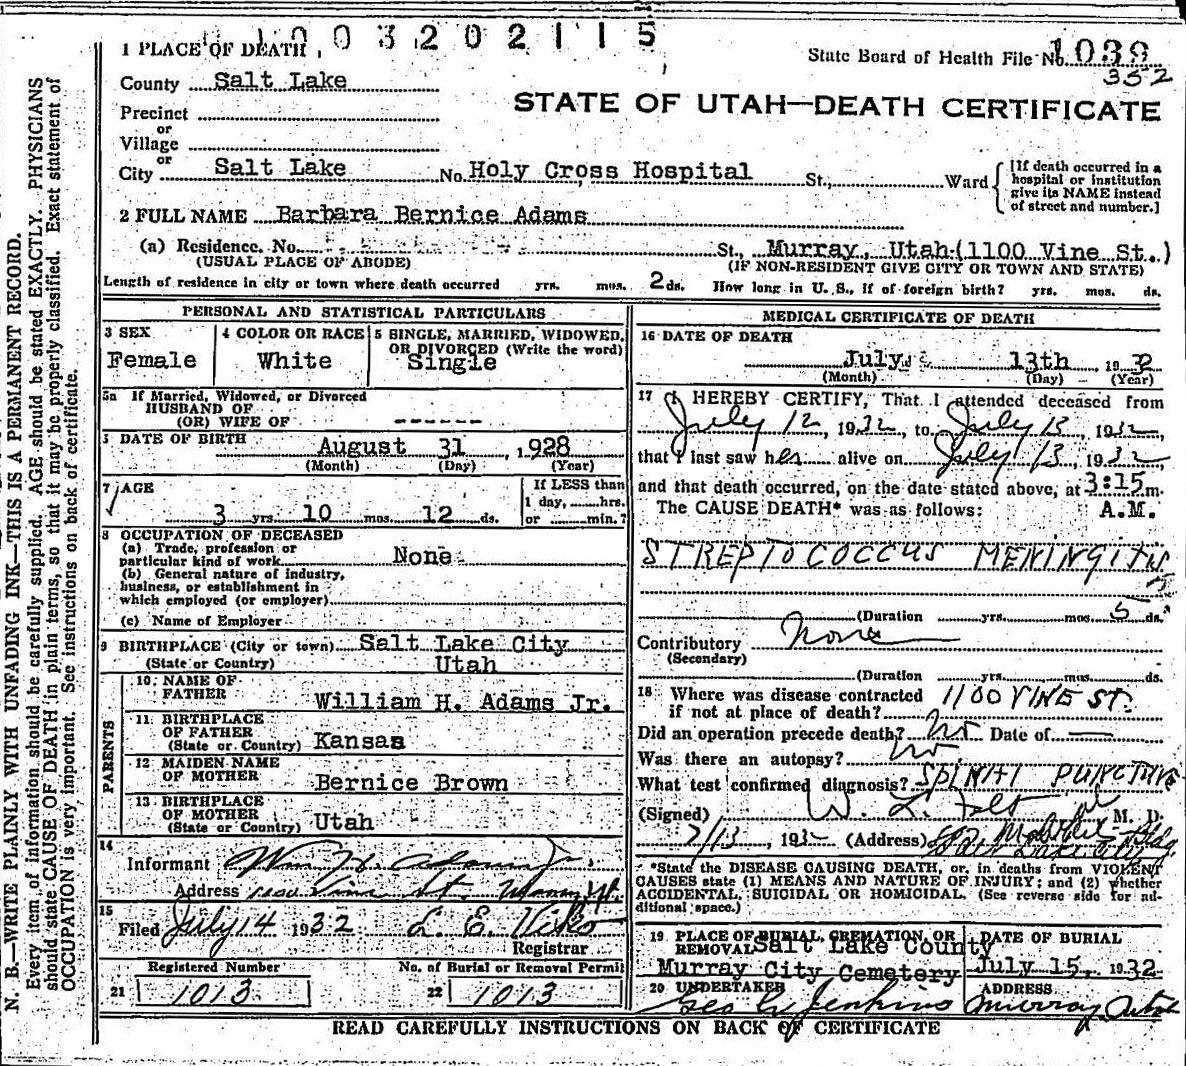 1003202115
1 PLACE OF DEATH
State Board of Health File No. 1039
352
County Salt Lake
STATE OF UTAH—DEATH CERTIFICATE
Precinct
or
Village
or
City Salt Lake No. Holy Cross Hospital St., Ward
[If death occurred in a hospital or institution give its NAME instead of street and number.]
2 FULL NAME Barbara Bernice Adams
(a) Residence. No. St., Murray, Utah (1100 Vine St.)
(USUAL PLACE OF ABODE) (IF NON-RESIDENT GIVE CITY OR TOWN AND STATE)
Length of residence in city or town where death occurred yrs. mos. 2 ds. How long in U. S., if of foreign birth? yrs. mos. ds.
PERSONAL AND STATISTICAL PARTICULARS
3 SEX
Female
4 COLOR OR RACE
White
5 SINGLE, MARRIED, WIDOWED,
OR DIVORCED (Write the word)
Single
5a If Married, Widowed, or Divorced
HUSBAND OF
(OR) WIFE OF ------
DATE OF BIRTH
August 31, 1928
(Month) (Day) (Year)
7 AGE
3 yrs. 10 mos. 12 ds.
If LESS than
1 day, hrs.
or min.?
8 OCCUPATION OF DECEASED
(a) Trade, profession or
particular kind of work None
(b) General nature of industry,
business, or establishment in
which employed (or employer)
(c) Name of Employer
9 BIRTHPLACE (City or town) Salt Lake City
(State or Country) Utah
PARENTS
10 NAME OF
FATHER William H. Adams Jr.
11 BIRTHPLACE
OF FATHER
(State or Country) Kansas
12 MAIDEN NAME
OF MOTHER Bernice Brown
13 BIRTHPLACE
OF MOTHER
(State or Country) Utah
14
Informant Wm. H. Adams Jr.
Address 1100 Vine St. Murray
15
Filed July 14 1932 L. E. Viko
Registrar
Registered Number No. of Burial or Removal Permit
21 1013 22 1013
MEDICAL CERTIFICATE OF DEATH
16 DATE OF DEATH
July 13th 1932
(Month) (Day) (Year)
17 I HEREBY CERTIFY, That I attended deceased from
July 12, 1932, to July 13, 1932,
that I last saw her alive on July 13, 1932
and that death occurred, on the date stated above, at 3:15 m.
The CAUSE DEATH* was as follows: A.M.
STREPTOCOCCUS MENINGITIS
(Duration yrs. mos. 5 ds.
Contributory None
(Secondary)
(Duration yrs. mos. ds.
18 Where was disease contracted 1100 VINE ST.
if not at place of death?
Did an operation precede death? no Date of —
Was there an autopsy? no
What test confirmed diagnosis? SPINAL PUNCTURE
(Signed) W. L. M. D.
7/13, 1932 (Address) Bldg.
Salt Lake City
*State the DISEASE CAUSING DEATH, or, in deaths from VIOLENT
CAUSES state (1) MEANS AND NATURE OF INJURY; and (2) whether
ACCIDENTAL, SUICIDAL OR HOMICIDAL. (See reverse side for ad-
ditional space.)
19 PLACE OF BURIAL, CREMATION, OR
REMOVAL Salt Lake County
Murray City Cemetery
DATE OF BURIAL
July 15, 1932
20 UNDERTAKER
Geo Jenkins
ADDRESS
Murray Utah
READ CAREFULLY INSTRUCTIONS ON BACK OF CERTIFICATE
N. B.—WRITE PLAINLY WITH UNFADING INK—THIS IS A PERMANENT RECORD.
Every item of information should be carefully supplied. AGE should be stated EXACTLY. PHYSICIANS
should state CAUSE OF DEATH in plain terms, so that it may be properly classified. Exact statement of
OCCUPATION is very important. See instructions on back of certificate.